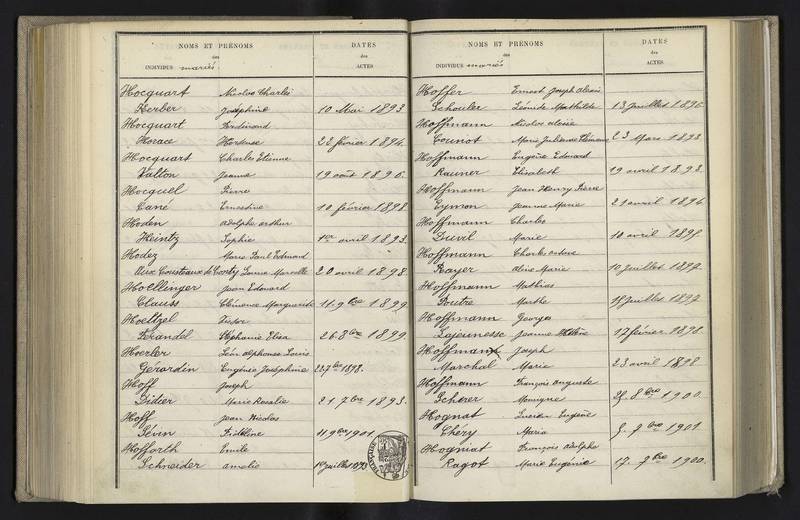 NOMS ET PRÉNOMS
des
INDIVIDUS mariés
DATES
des
ACTES
Hocquart Nicolas Charles
Herber Joséphine 10 Mai 1893
Hocquart Ferdinand
Horace Hortense 22 février 1894.
Hocquart Charles Etienne
Valton Jeanne 19 août 1896.
Hocquel Pierre
Cané Ernestine 10 février 1898
Hoden Adolphe Arthur
Heintz Sophie 1er avril 1893.
Hodez Marie Paul Edmond
Aux Cousteaux de Louise Marcelle 20 avril 1898.
Hoellinger Jean Edouard
Clauss Clémence Marguerite 11. 9bre 1899
Hoeltzel
Brandel Stéphanie Elisa 26. 8bre 1899.
Hoerler Léon Alphonse Louis
Gérardin Eugénie Joséphine 1898.
Hoff Joseph
Didier Marie Rosalie 21 7bre 1893.
Hoff Jean Nicolas
Sévin 11 9bre 1901
Hofforth Emile
Schneider Amélie juillet
NOMS ET PRÉNOMS
des
INDIVIDUS mariés
DATES
des
ACTES
Hoffer Ernest Joseph Alexis
Schouler Léonide Mathilde 13 juillet 1896.
Hoffmann Nicolas
Couniot Marie Julienne 23 Mars 1893
Hoffmann Eugène Edouard
Rauner Elisabeth 19 avril 1893.
Hoffmann Jean Henry Pierre
Eymon Jeanne Marie 21 avril 1896
Hoffmann Charles
Duvil Marie 10 avril 1899.
Hoffmann Charles
Rayer Marie 10 juillet 1897.
Hoffmann Mathias
Poutre Marthe juillet 1897.
Hoffmann Georges
Lajeunesse Jeanne 17 février 1898.
Hoffmann Joseph
Marchal Marie 23 avril 1898
Hoffmann François Auguste
Scherer Monique 8bre 1900.
Hognat Lucien Eugène
Chéry Maria 9bre 1901
Hogniat François Adolphe
Ragot Marie Eugénie 17. 9bre 1900.